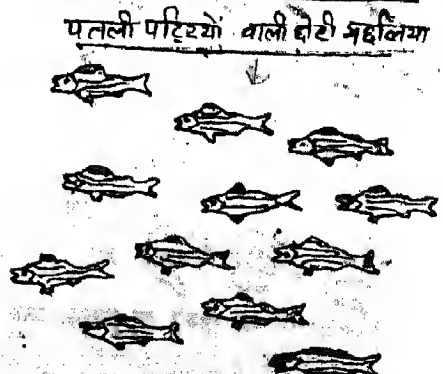 पतली पट्टियों वाली छोटी मछलिया